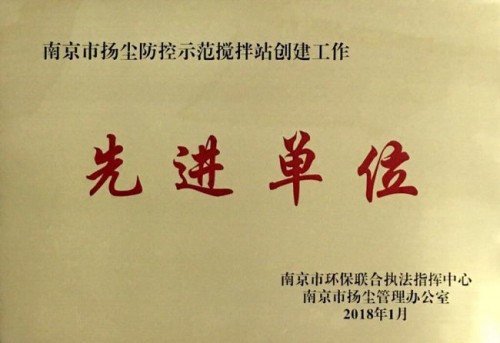 南京市扬尘防控示范搅拌站创建工作
先进单位
南京市环保联合执法指挥中心
南京市扬尘管理办公室
2018年1月